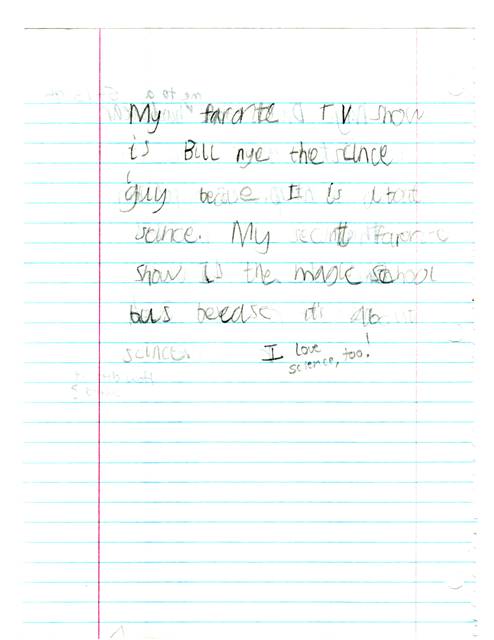 My favorite TV show
is Bill nye the since
guy becase It is about
sience. My secint favorite
show is the magic school
bus becase it's about
science.
I love
science, too!